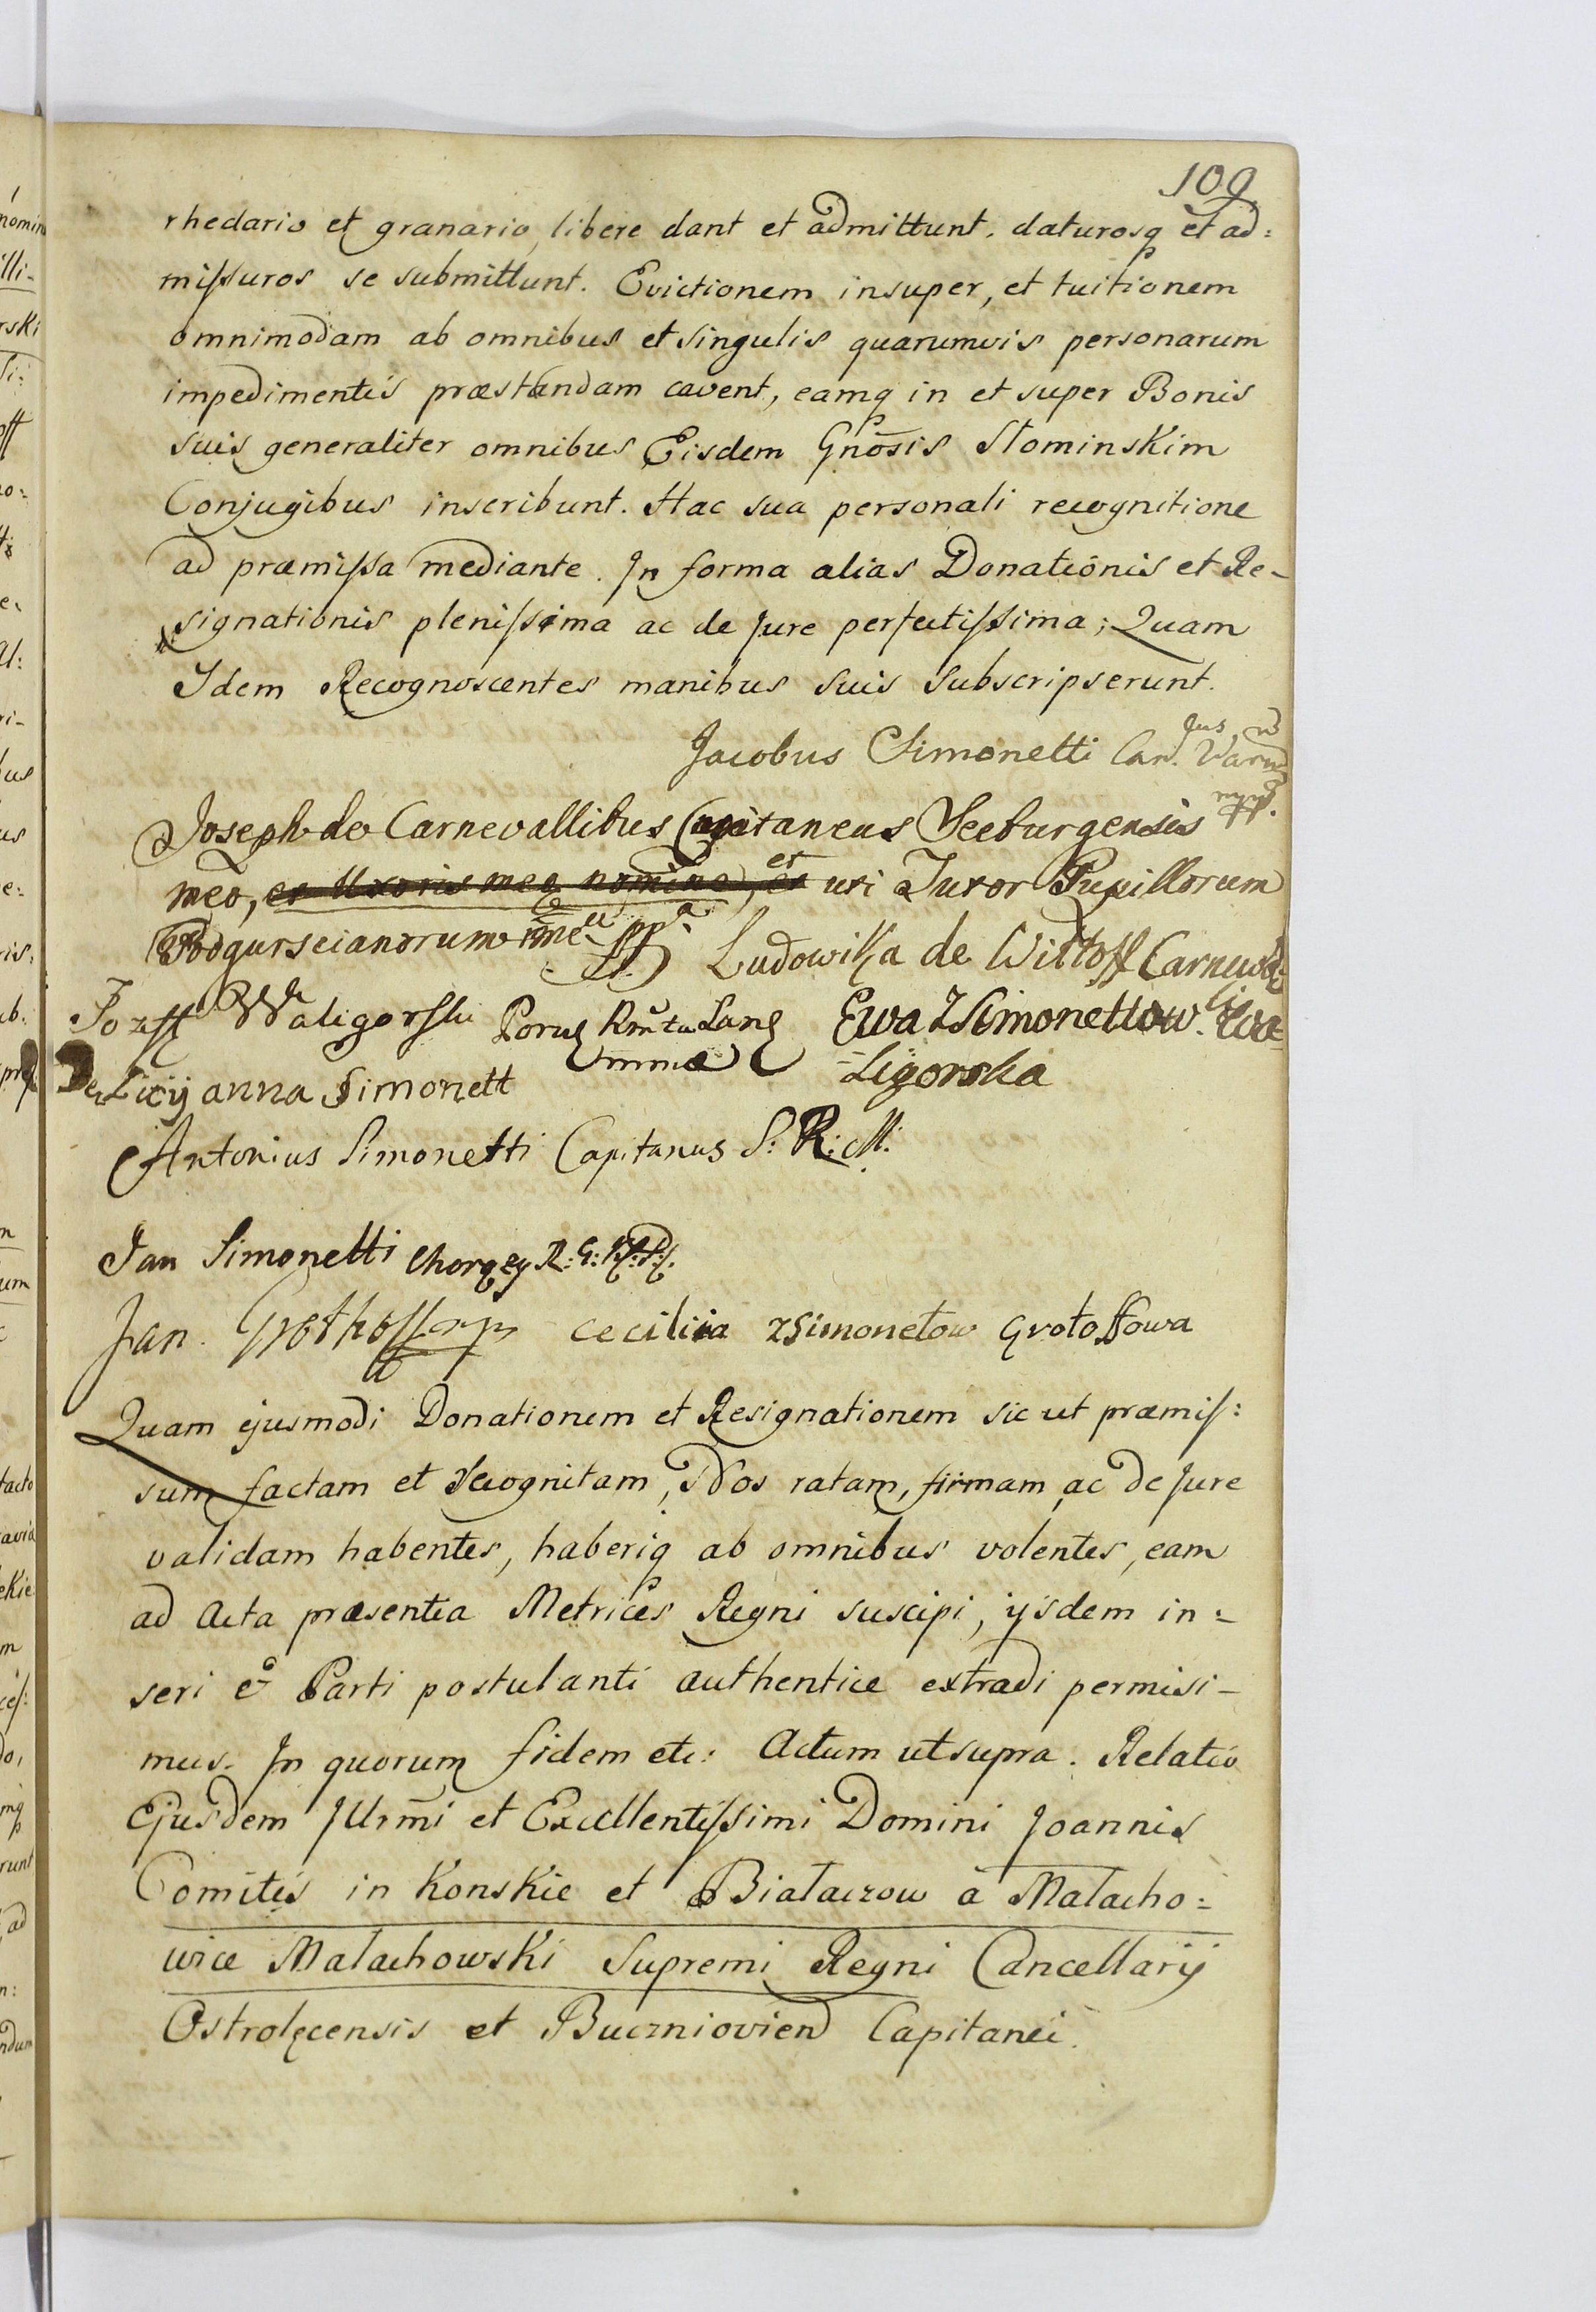 109
rhedario et granario, libere dant et admittunt, daturosq et ad:
missuros se submittunt. Evictionem insuper, et tuitionem
omnimodam ab omnibus et singulis quarumvis personarum
impedimentis præstandam cavent, eamq in et super Bonis
suis generaliter omnibus Eisdem Gnōsis Słominskim
Conjugibus inscribunt. Hac sua personali recognitione
ad præmissa mediante. In forma alias Donationis et Re-
signationis plenissima ac de Jure perfectissima; Quam
Idem Recognoscentes manibus suis subscripserunt.
Jacobus Simonetti Can. Varm
mpp.
Joseph de Carnevallibus Capitaneus Seeburgensis
meo, et Uxoris meæ nomine, et uti Tutor Pupillorum
Podgurscianorum
Ludowika de Wittoff Carneva
Jozeff Waligorski Porucz Ewa z Simonettow Wa
Ligorska
Anna Simonett
Antonius Simonetti Capitanus S: R: M:
Jan Simonetti Chorązy R: G:
Jan Grothoff mp Cecilia z Simonetow Grotoffowa
Quam ejusmodi Donationem et Resignationem sic ut præmis:
sum factam et recognitam, Nos ratam, firmam ac de Jure
validam habentes, haberiq ab omnibus volentes, eam
ad Acta præsentia Metrices Regni suscipi, ijsdem in:
seri & Parti postulanti authentice extradi permisi-
mus. In quorum fidem etc: Actum ut supra. Relatio
Ejusdem Illrmi et Excellentissimi Domini Joannis
Comitis in Konskie et Białaczow à Małacho:
wice Małachowski Supremi Regni Cancellarij
Ostrolęcensis et Buczniovien Capitanei.